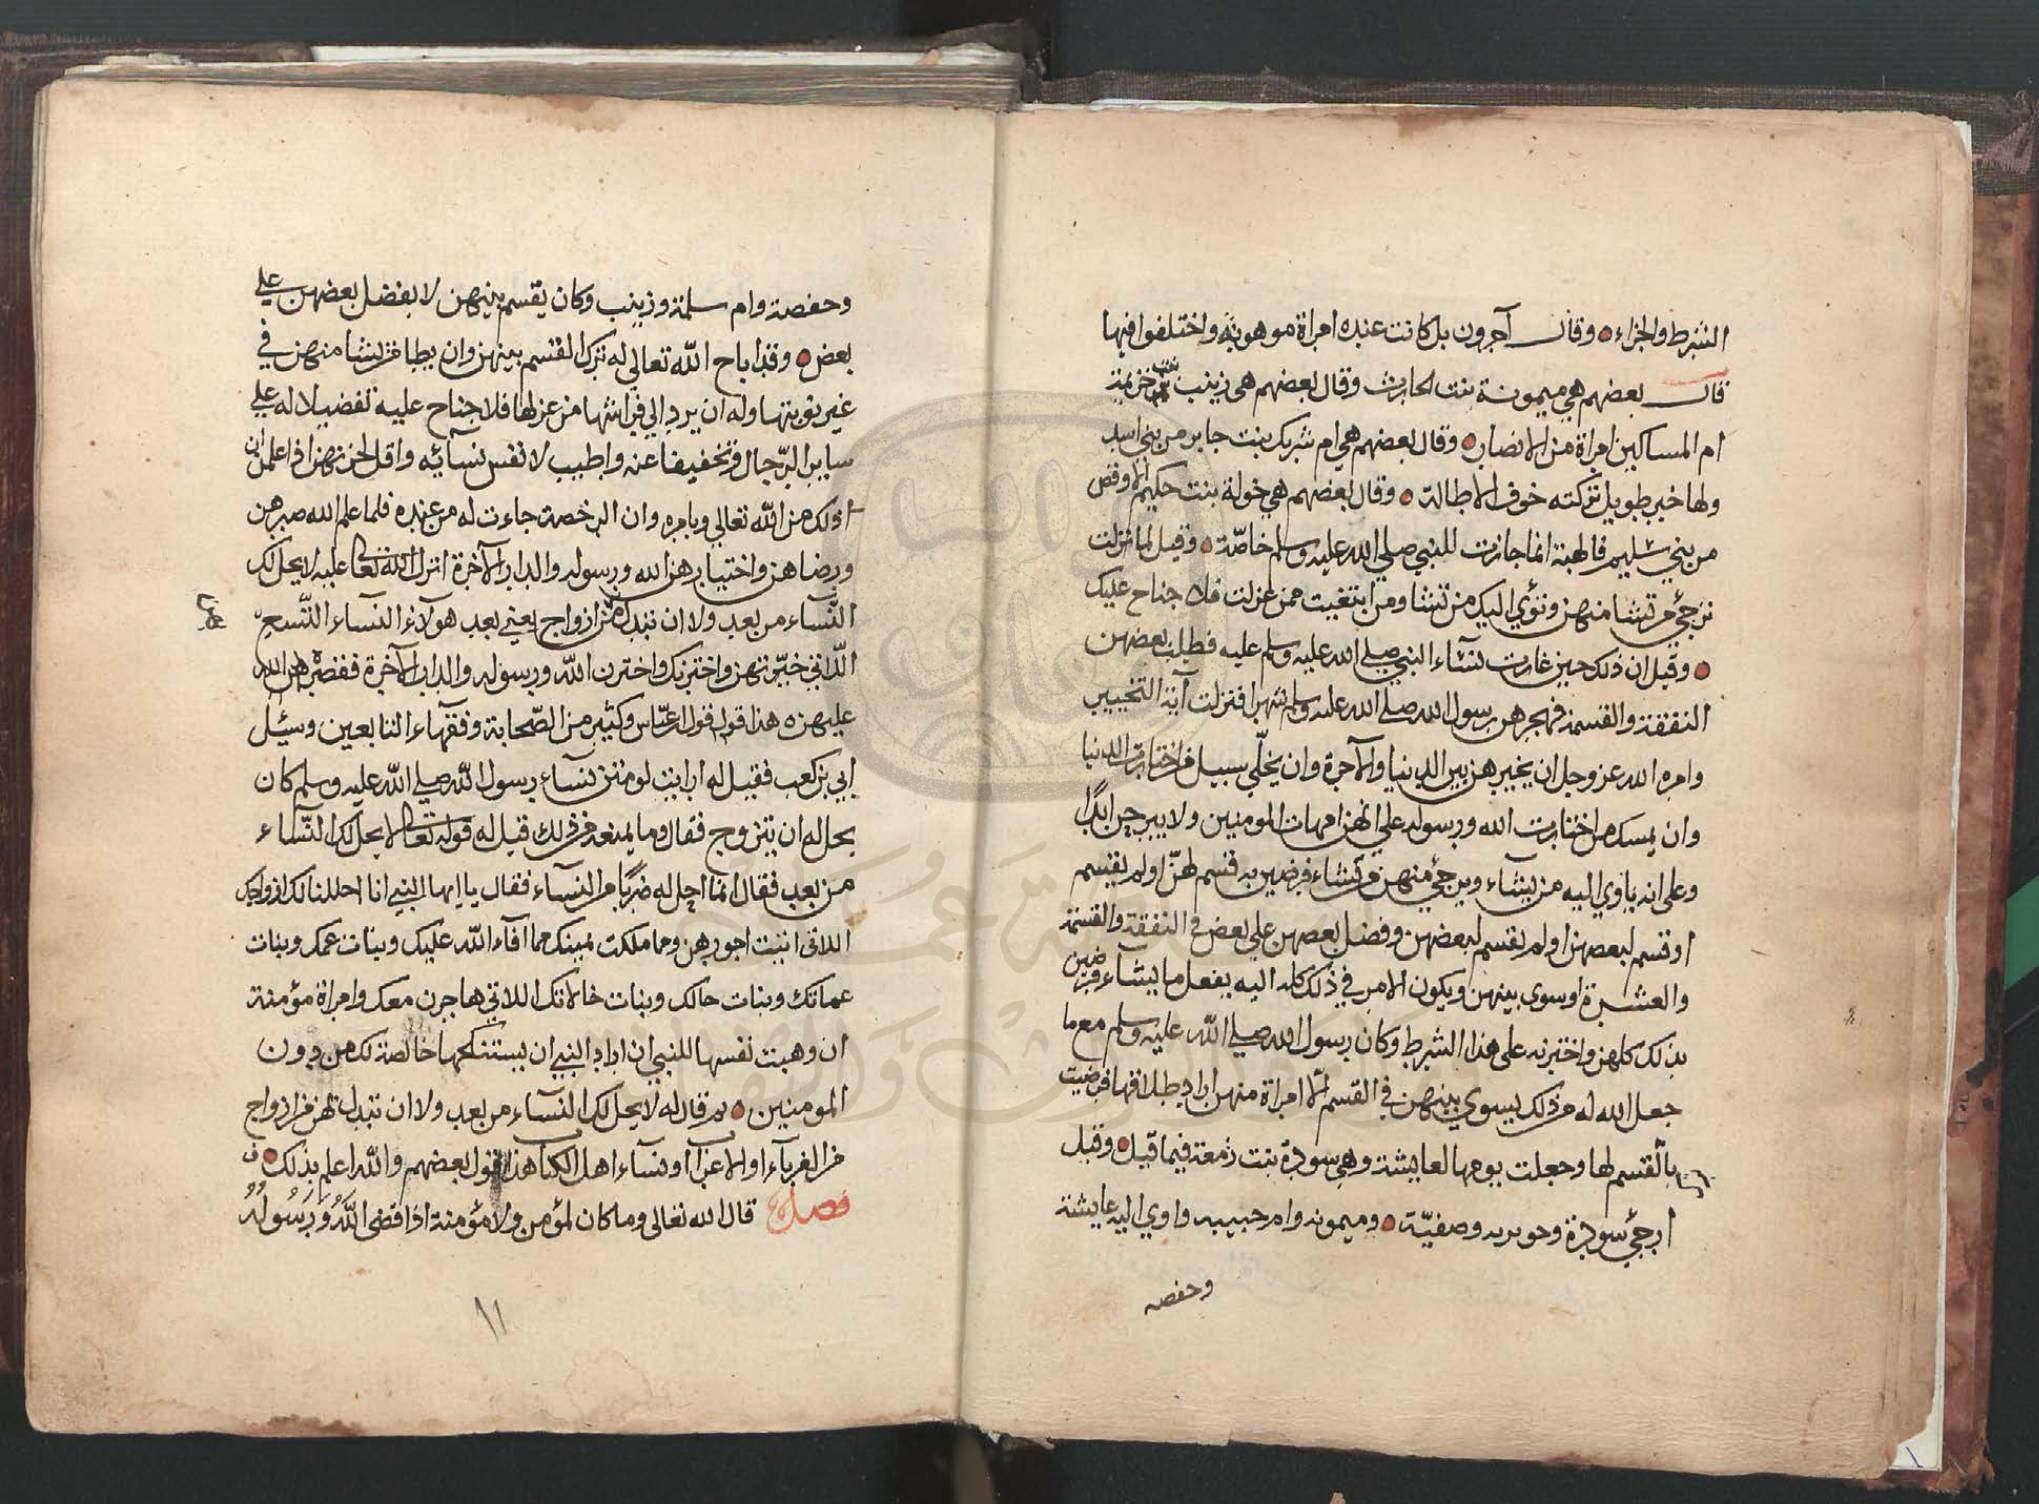 الشرط والجزاء ٥ وقال آخرون بل كانت عنده امراة موهوبة واختلفوا فيها
قال بعضهم هي ميمونة بنت الحارث وقال بعضهم هي زينب بنت خزيمة
ام المساكين امراة من الانصار ٥ وقال بعضهم هي ام شريك بنت جابر من بني اسد
ولها خبر طويل تركته خوف الاطالة ٥ وقال بعضهم هي خولة بنت حكيم الاوقص
من بني سليم فالهبة انما جازت للنبي صلى الله عليه وسلم خاصّة ٥ وقيل لما نزلت
ترجئ من تشا منهن وتؤي اليك من تشا ومن ابتغيت ممن عزلت فلا جناح عليك
٥ وقيل ان ذلك حين غارت نساء النبي صلى الله عليه وسلم عليه فطلب بعضهن
النفقة والقسمة فهجرهن رسول الله صلى الله عليه وسلم شهرا فنزلت آية التخيير
وامره الله عز وجل ان يخيرهن بين الدنيا والآخرة وان يخلّي سبيل من اختارت الدنيا
وان يمسك من اختارت الله ورسوله على انهن امهات المومنين ولا يبرحن ابدًا
وعلى انه ياوي اليه من يشاء ويرجئ منهن من يشاء فرضين به قسم لهنّ او لم يقسم
او قسم لبعضهن او لم يقسم لبعضهن وفضل بعضهن على بعض في النفقة والقسمة
والعشرة او سوى بينهن ويكون الامر في ذلك كله اليه يفعل ما يشاء فرضين
بذلك كلهن واخترنه على هذا الشرط وكان رسول الله صلى الله عليه وسلم مع ما
جعل الله له من ذلك يسوي بينهن في القسم الا امراة منهن اراد طلاقها فرضيت
بالقسم لها وجعلت يومها لعايشة وهي سودة بنت زمعة فيما قيل ٥ وقيل
ارجئ سودة وجويريه وصفيّة ٥ وميمونه وام حبيبه واوي اليه عايشة
وحفصه
وحفصة وام سلمة وزينب وكان يقسم بينهن لا يفضل بعضهن علي
بعض ٥ وقد اباح الله تعالى له ترك القسم بينهن وان يطا من يشا منهن في
غير نوبتها وله ان يرد الي فراشها من عزلها فلا جناح عليه تفضيلا له علي
ساير الرّجال وتخفيفا عنه واطيب لانفس نسائه واقل لحزنهن اذا علمن ان
ذلك من الله تعالي وبامره وان الرخصة جاءت له من عنده فلما علم الله صبرهن
ورضاهن واختيارهن الله ورسوله والدار الآخرة انزل الله تعالى عليه لا يحل لك
النّساء من بعد ولا ان تبدل بهن من ازواج يعني بعد هولاء النساء التّسع
اللّاتي خيّرتهن واخترنك واخترن الله ورسوله والدار الآخرة فقصره الله
عليهن ٥ هذا قوله قول ابن عبّاس وكثير من الصّحابة وفقهاء التابعين وسئل
ابي بن كعب فقيل له ارايت لو متن نساء رسول الله صلى الله عليه وسلم كان
يحل له ان يتزوج فقال وما يمنعه من ذلك قيل له قوله تعالى لا يحل لك النّساء
من بعد فقال انما احل له ضربًا من النساء فقال يا ايها النبي انا احللنا لك ازواجك
اللاتي اتيت اجورهن وما ملكت يمينك مما افاء الله عليك وبنات عمك وبنات
عماتك وبنات خالك وبنات خالاتك اللاتي هاجرن معك وامراة مؤمنة
ان وهبت نفسها للنبي ان اراد النبي ان يستنكحها خالصة لك من دون
المومنين ٥ ثم قال له لا يحل لك النساء من بعد ولا ان تبدل بهن من ازواج
من الغرباء او الاعراب او نساء اهل الكتاب هذا قول بعضهم والله اعلم بذلك ٥
فصل قال الله تعالى وما كان لمؤمن ولا مؤمنة اذا قضى اللّهُ وَرَسُولُهُ
١١